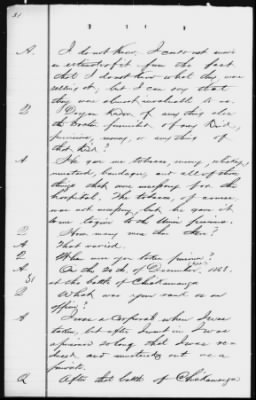 31
A. I do not know, I could not make
an estimate of it from the fact
that I do not know what they were
selling it, but I can say that
they were almost invaluable to us.
Q Do you know of any thing else
the Doctor furnished of any kind,
provisions, money, or any thing of
that kind?
A He gave me tobacco, money, whiskey,
mustard, bandages, and all of those
things that are necessary for the
hospital. The tobacco, of course
was not necessary, but he gave it
to me to give to the Union prisoners.
Q How many were there?
A That varied.
Q When were you taken prisoner?
A On the 20th of December, 1863.
31 at the battle of Chickamauga
Q What was your rank as an
officer?
A I was a corporal when I was
taken, but after I went in I was
a prisoner so long that I was re-
duced and mustered out as a
private.
Q After that battle of Chickamauga